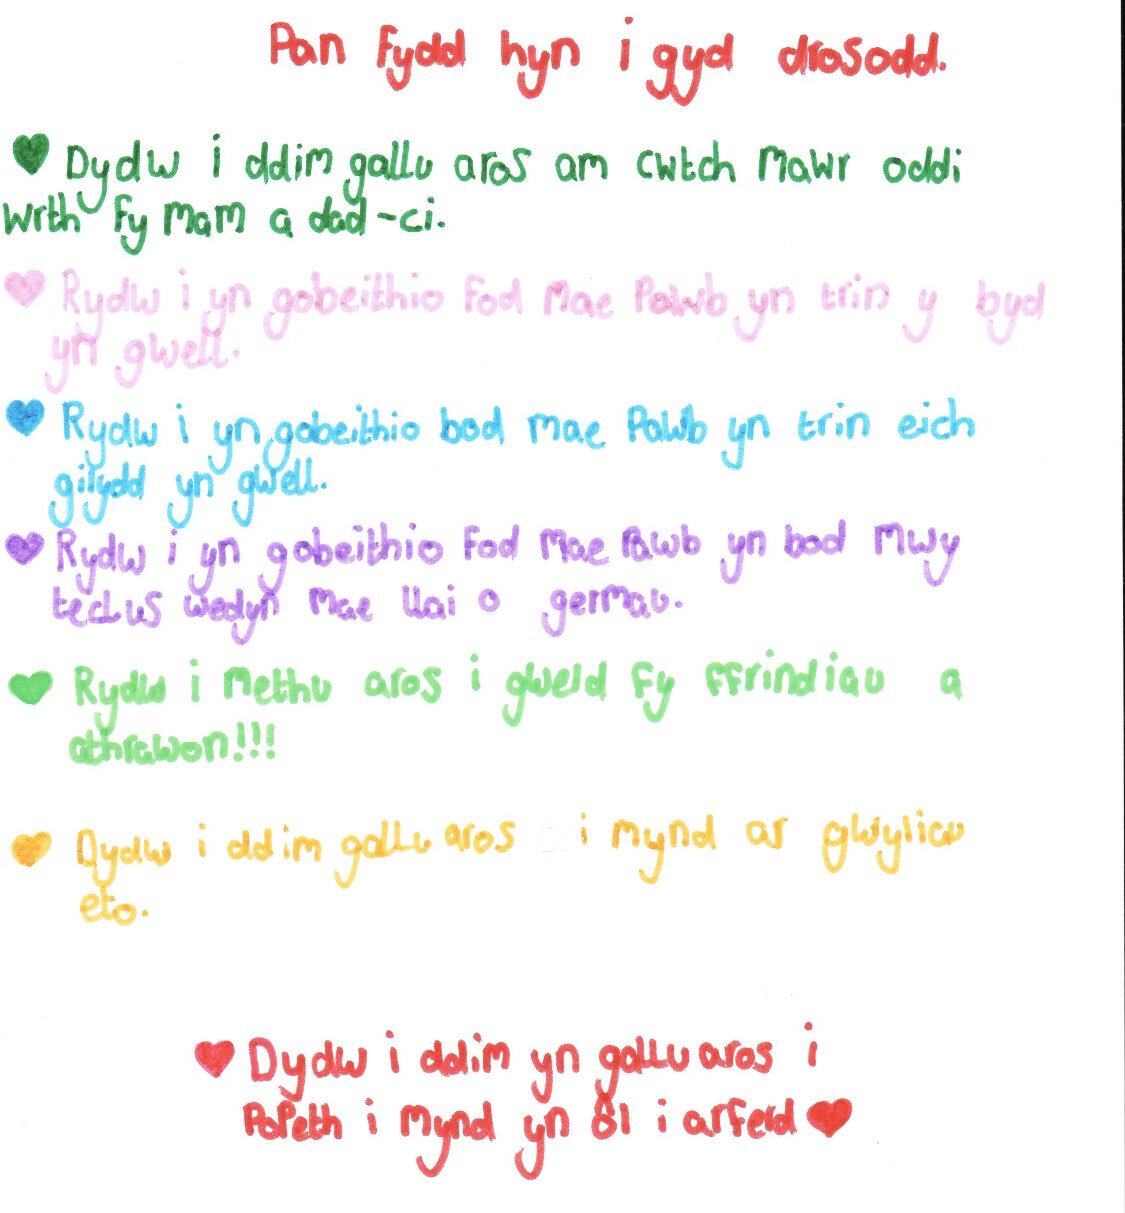 Pan fydd hyn i gyd drosodd.
Dydw i ddim gallu aros am cwtch mawr oddi
wrth fy mam a dad-ci.
Rydw i yn gobeithio fod mae Pawb yn trin y byd
yn gwell.
Rydw i yn gobeithio bod mae Pawb yn trin eich
gilydd yn gwell.
Rydw i yn gobeithio fod mae Pawb yn bod mwy
teclus wedyn mae llai o germau.
Rydw i methu aros i gweld fy ffrindiau a
athrawon!!!
Dydw i ddim gallu aros i mynd ar gwyliau
eto.
Dydw i ddim yn gallu aros i
Popeth i mynd yn ôl i arferd